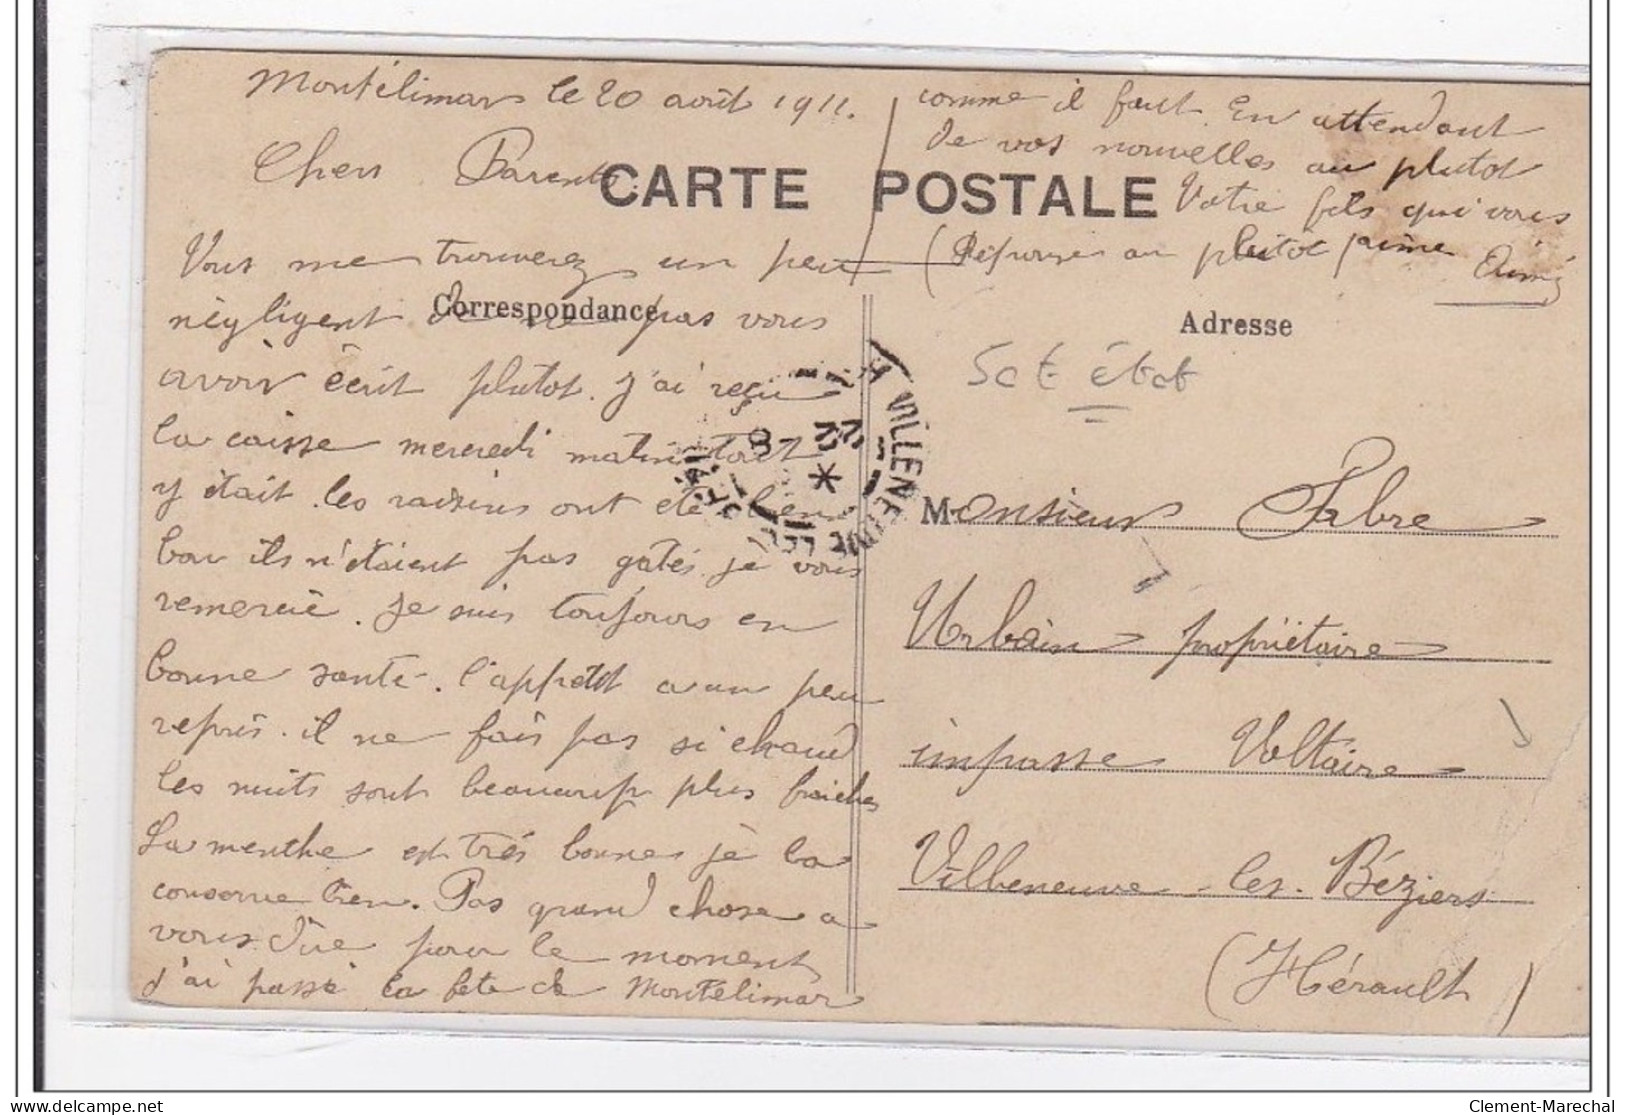 Montélimar le 20 août 1911.
Chers Parents.
CARTE POSTALE
Vous me trouverez un peu
négligent de ne pas vous
Correspondance
avoir écrit plutot. j'ai reçu
la caisse mercredi matin tout
y était. les raisins ont été bien
bon ils n'étaient pas gatés. je vous
remercie. Je suis toujours en
bonne santé. l'appétit a un peu
repris. il ne fait pas si chaud
les nuits sont beaucoup plus fraiches
La menthe est très bonne je la
conserve bien. Pas grand chose a
vous dire pour le moment
j'ai passé la fete de Montélimar
comme il faut. En attendant
de vos nouvelles au plutot
Votre fils qui vous
(Réponse au plutôt) aime
Aimé
Adresse
Monsieur Fabre
Urbain propriétaire
impasse Voltaire
Villeneuve-les-Béziers
(Hérault)
VILLENEUVE
Clement-Marechal